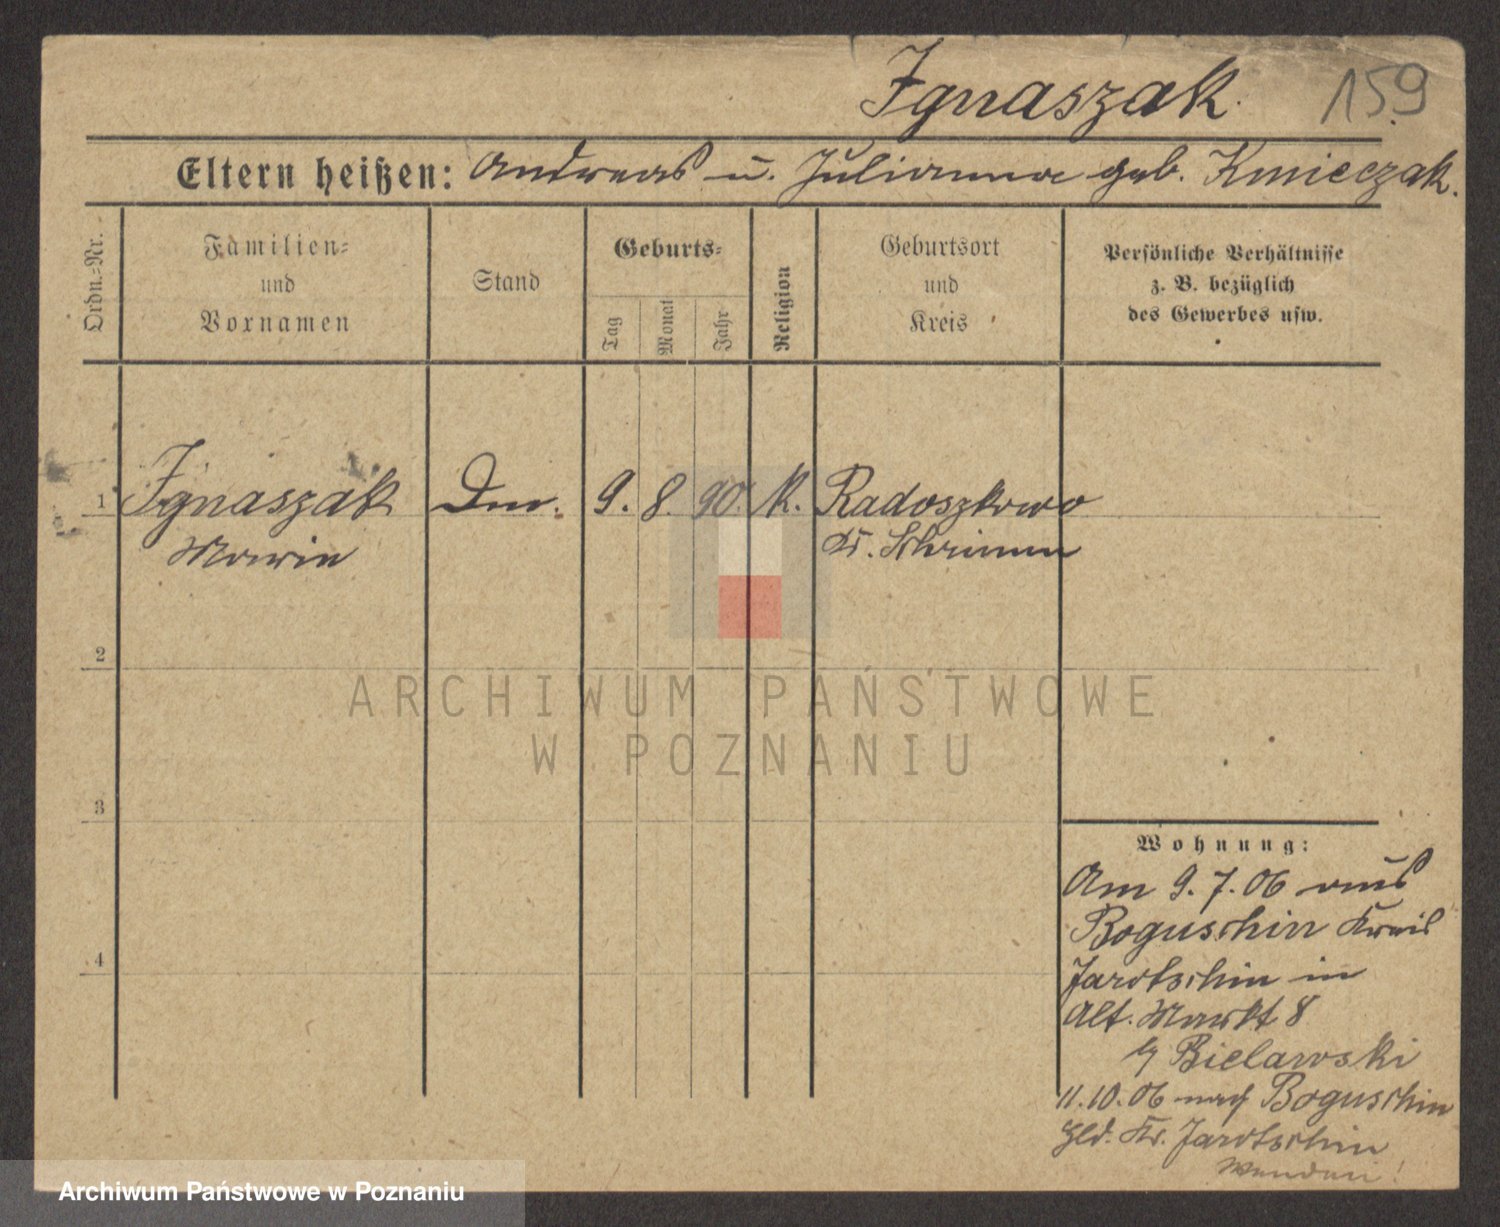 Ignaszak. 159
Eltern heißen: Andreas u. Julianna geb. Kmieczak.
Ordn.=Nr.
Familien=
und
Vornamen
Stand
Geburts=
Tag
Monat
Jahr
Religion
Geburtsort
und
Kreis
Persönliche Verhältnisse
z. B. bezüglich
des Gewerbes usw.
1 Ignaszak Dm. 9. 8. 90. k. Radoszkowo
Marie Kr. Schrimm
2
3
4
Wohnung:
Am 9.7.06 aus
Boguschin Kreis
Jarotschin in
Alt. Markt 8
b/ Bielawski
11.10.06 nach Boguschin
Hld. Kr. Jarotschin
Wenden!
ARCHIWUM PAŃSTWOWE
W POZNANIU
Archiwum Państwowe w Poznaniu